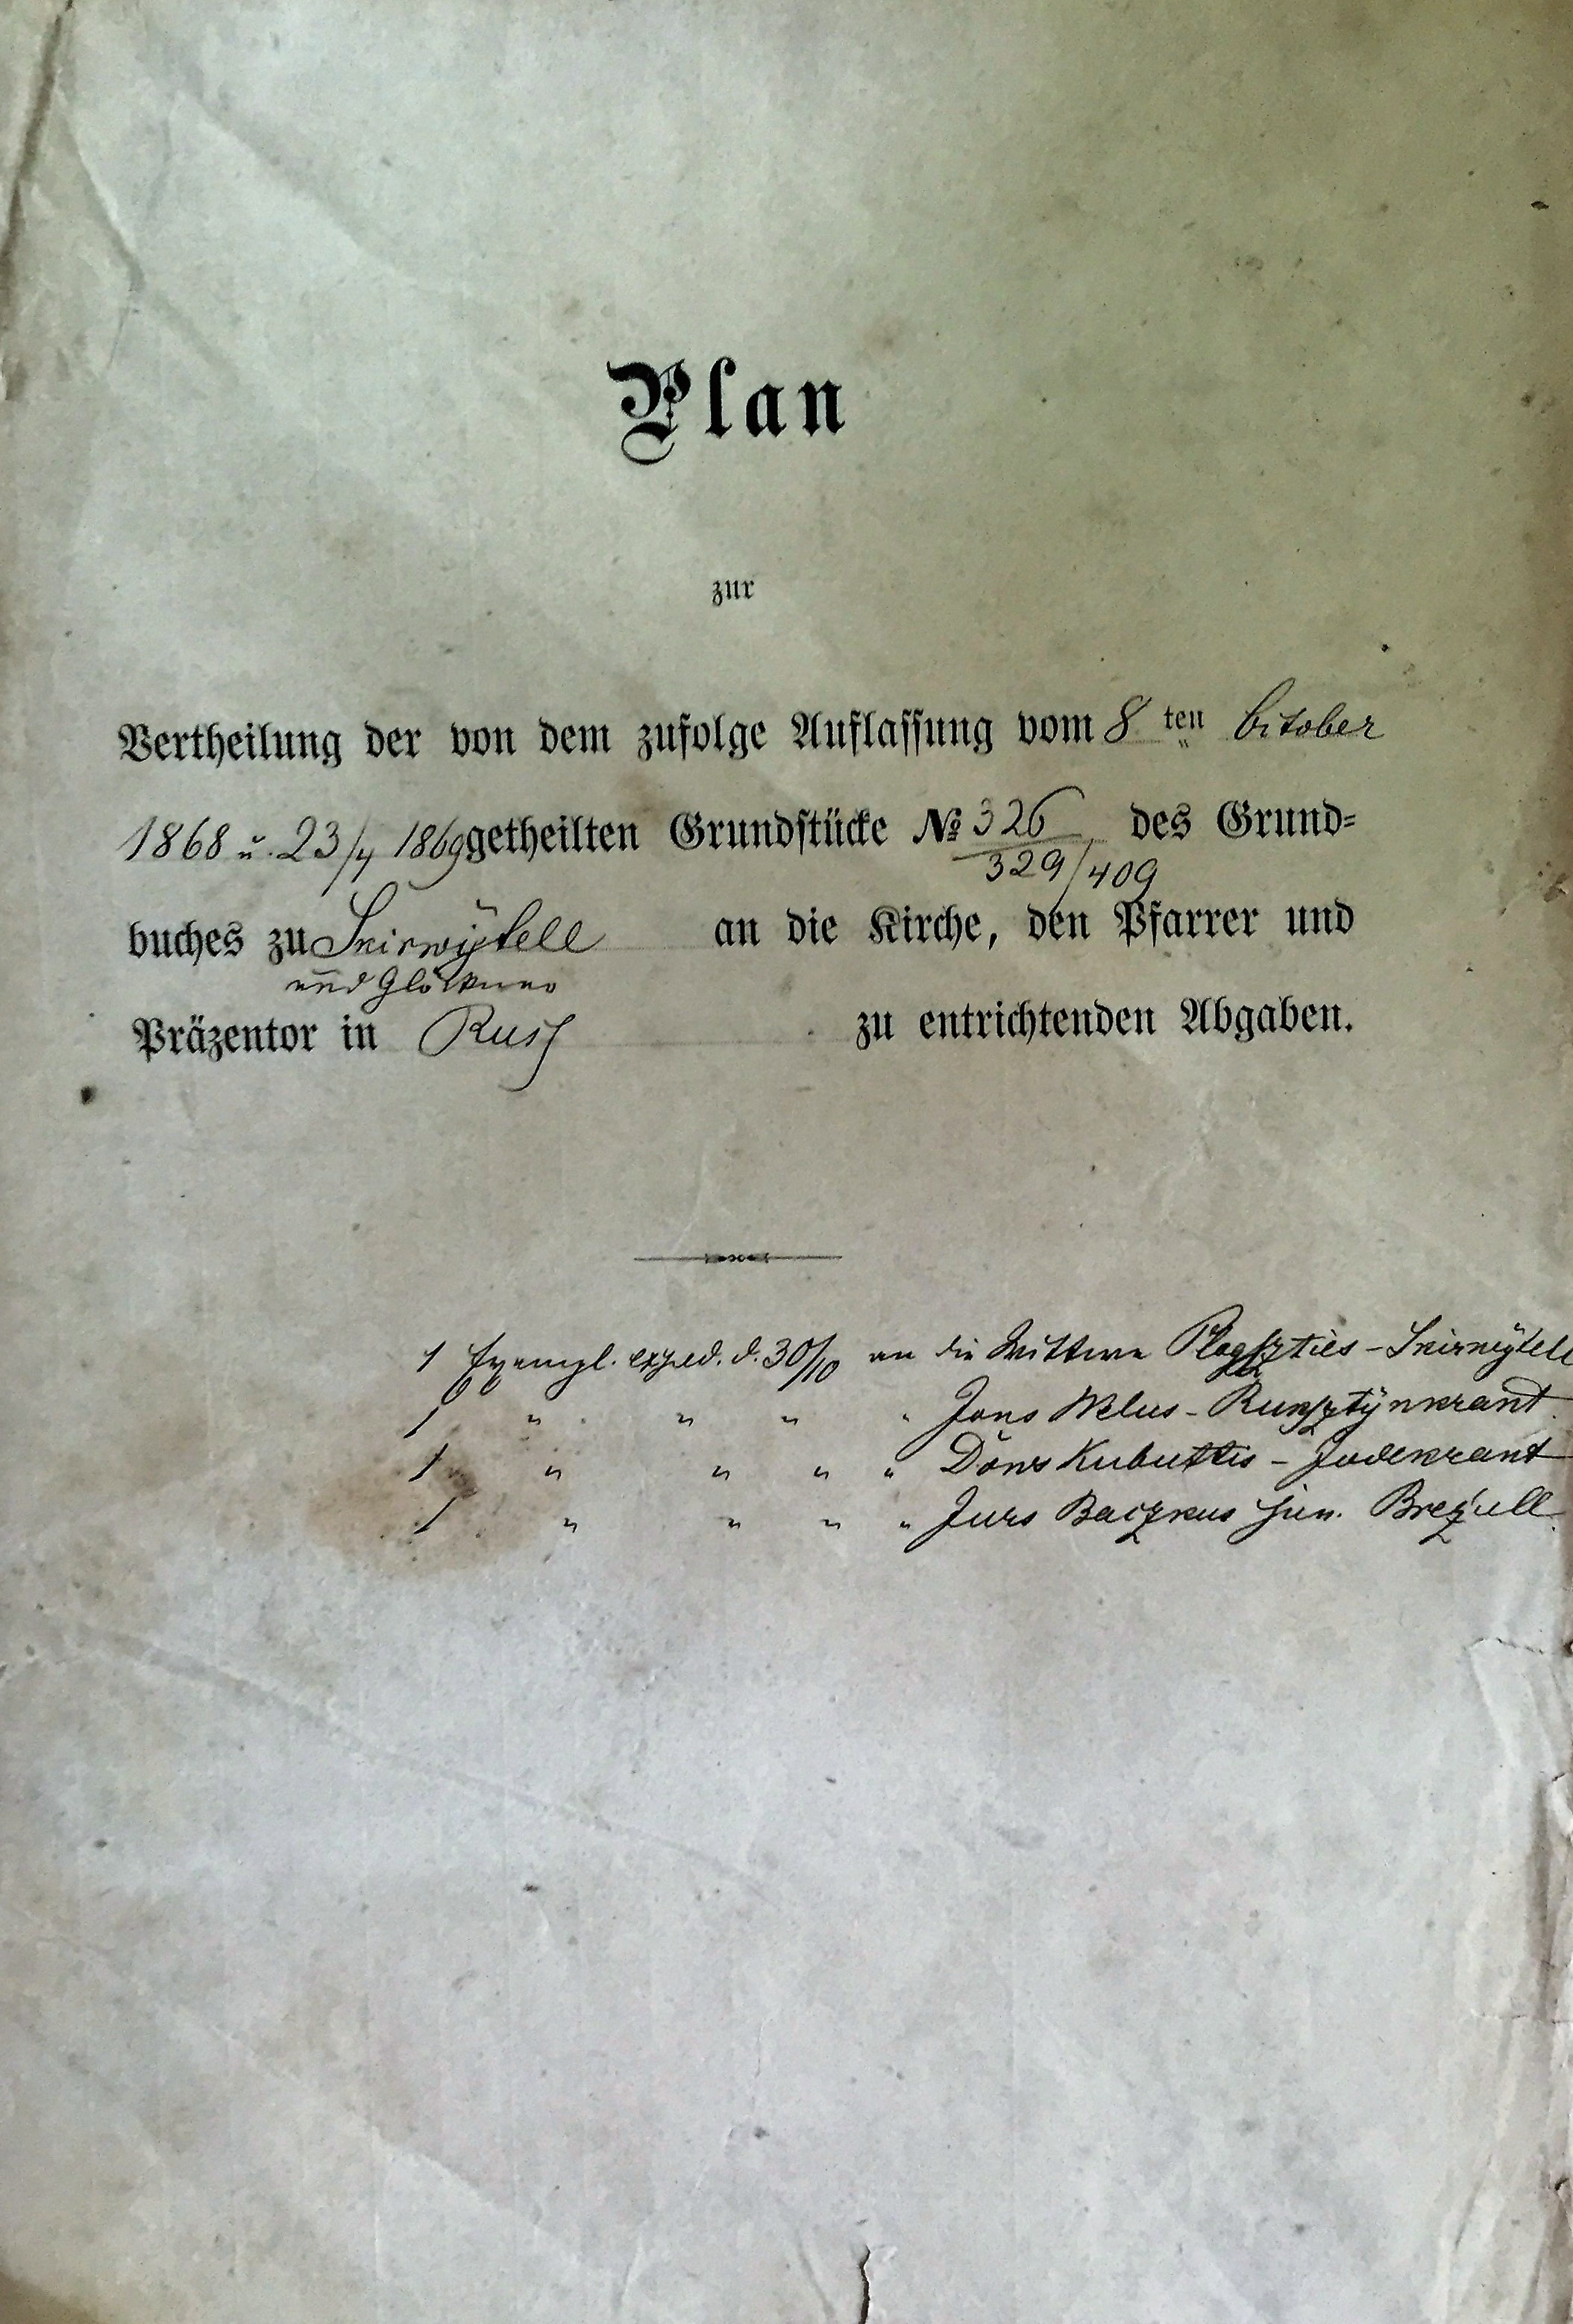 Plan
zur
Vertheilung der von dem zufolge Auflassung vom 8 ten October
1868 u. 23/4 1869 getheilten Grundstücke № 326
329/409 des Grund=
buches zu Skirwytell an die Kirche, den Pfarrer und
und Glöckner
Präzentor in Russ zu entrichtenden Abgaben.
1 Exempl. exped. d. 30/10 an die Wittwe Plogszties - Skirwytell
1 " " " " Jons Welus - Rupkalwen
1 " " " " Döns Kubuttis - Jodekrant
1 " " " " Jurs Baczkus jun. Brezull